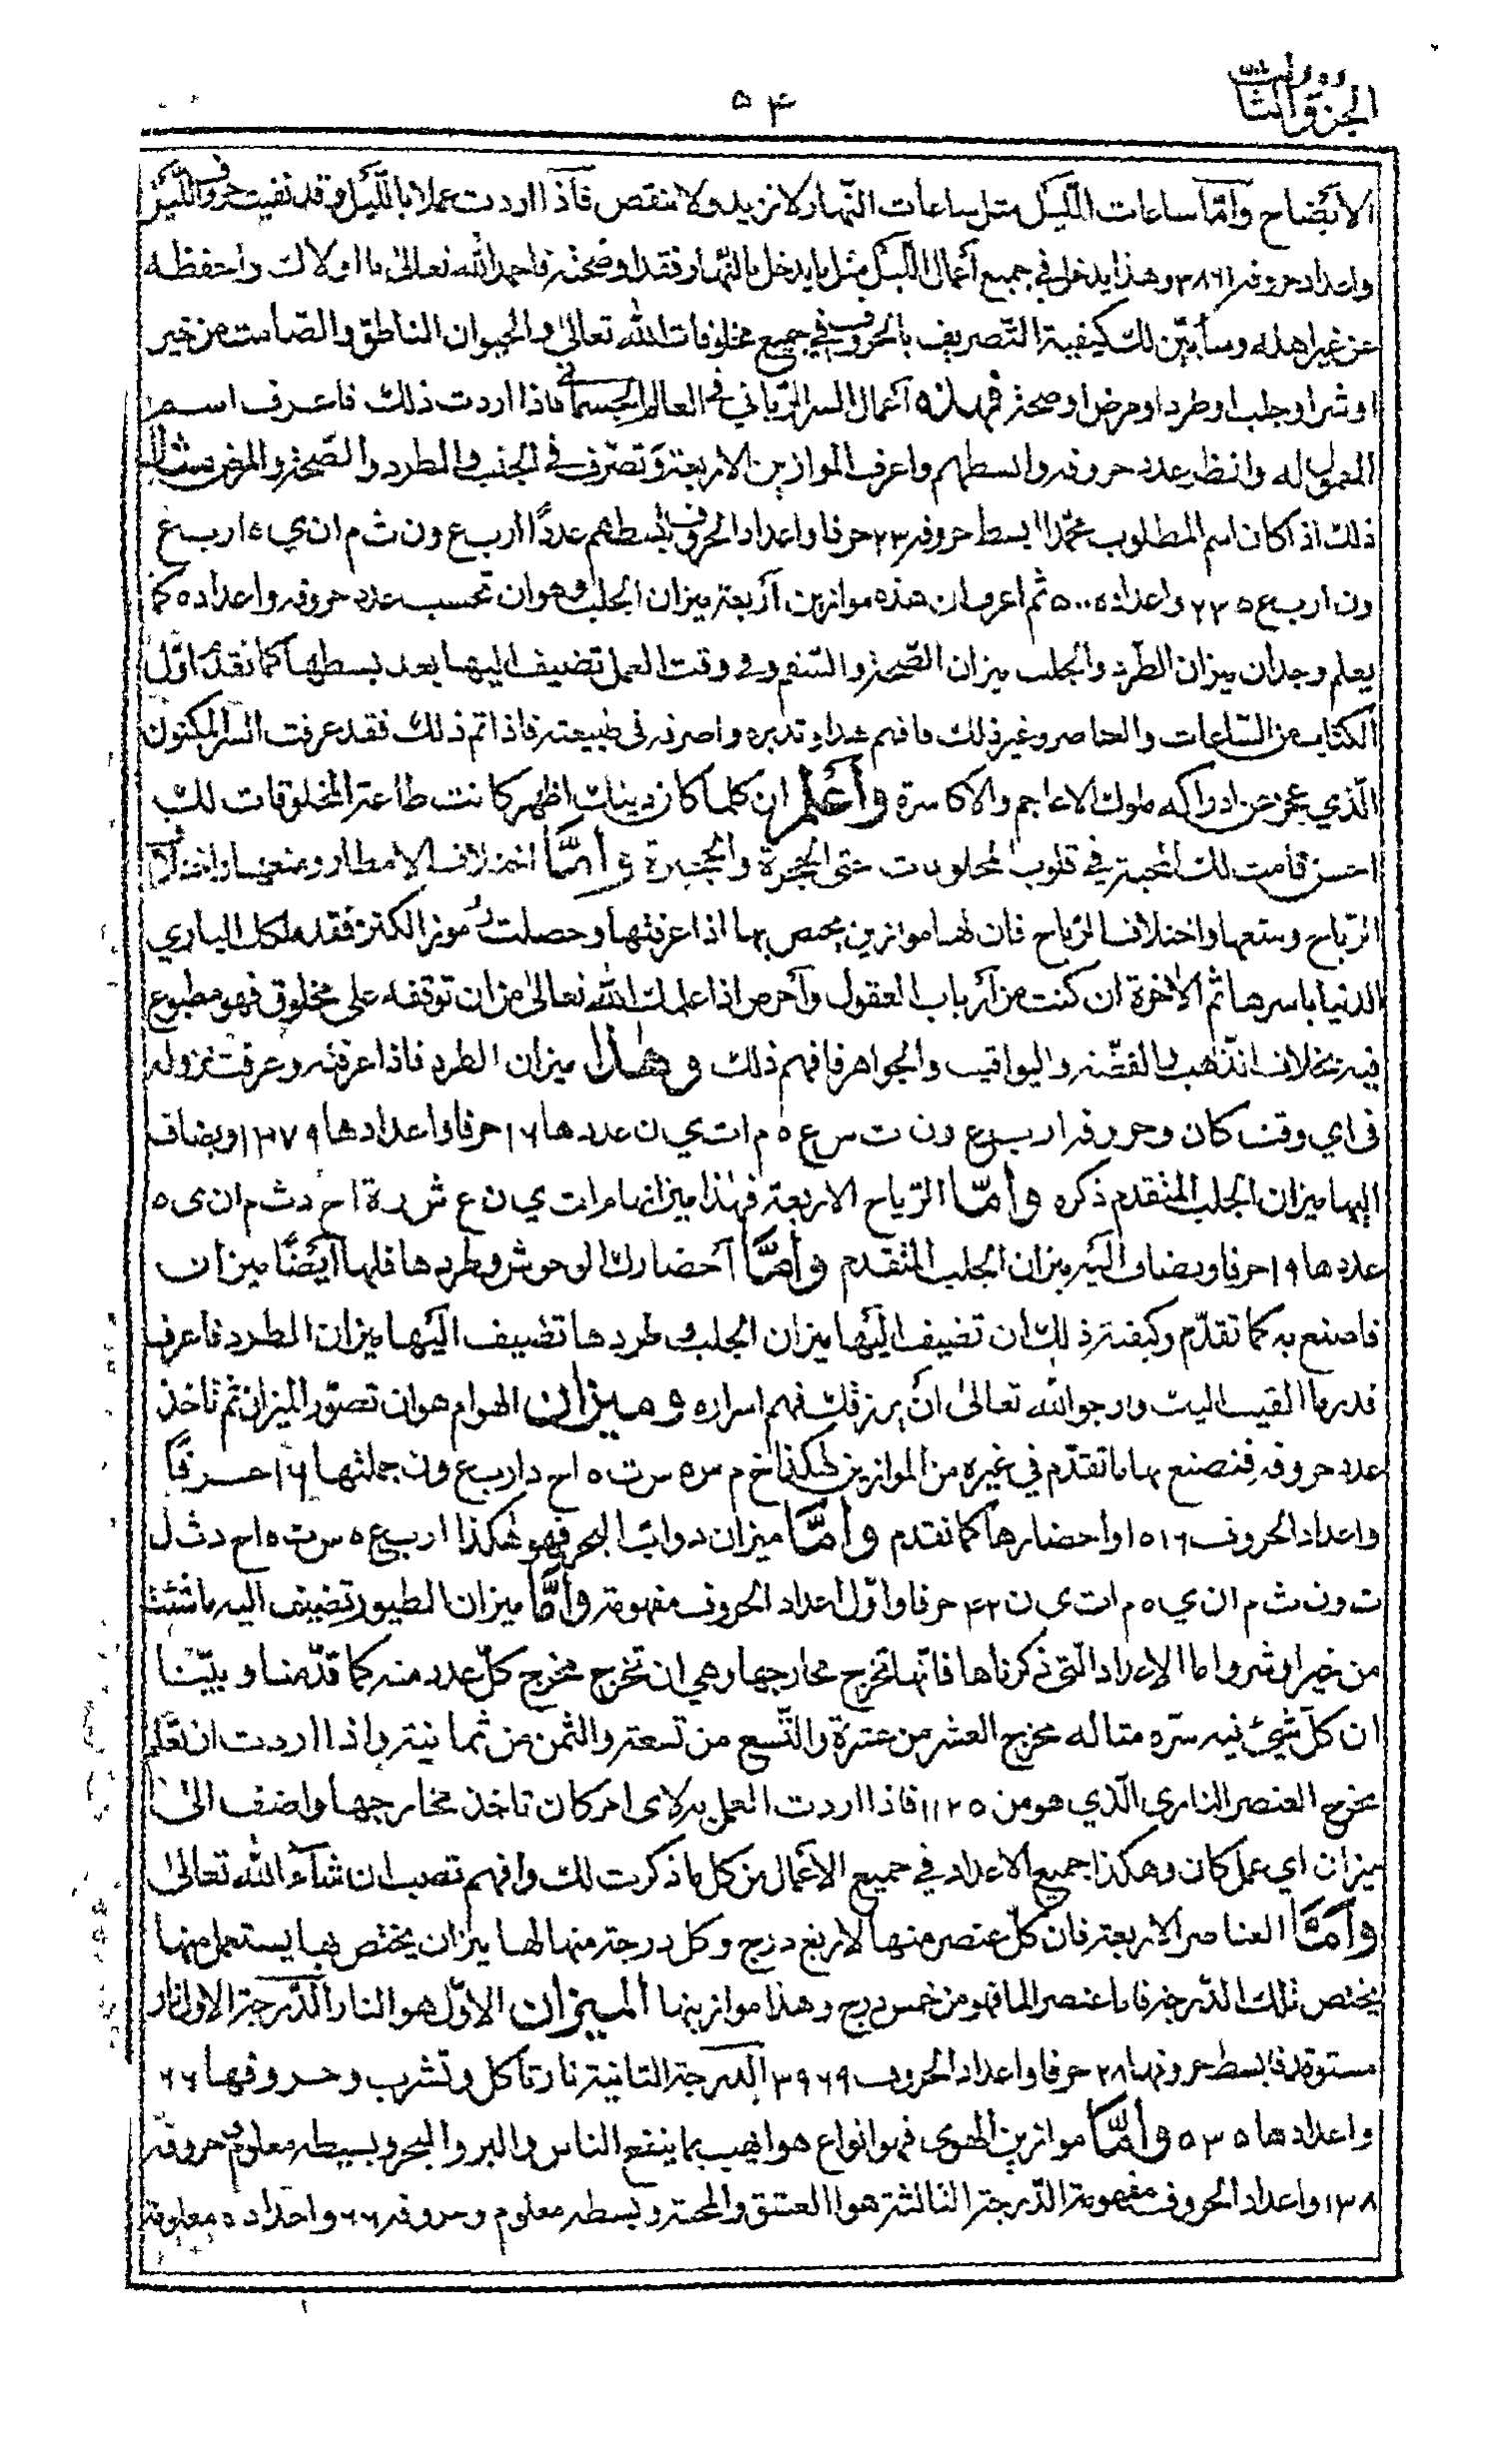 الجزؤ الثالث
٥٤
الايضاح وأمّا ساعات اللّيل مثل ساعات النّهار لا تزيد ولا تنقص فاذا اردت عملا باللّيل وقد نفيت حروف اللّيل
واعداد حروفه ٣٨٦١ وهذا يدخل في جميع أعمال اللّيل مثل ما يدخل بالنّهار فقد اوضحته فاحمد الله تعالى ما اولاك واحفظه
عن غير اهله وسأبيّن لك كيفية التّصريف بالحروف في جميع مخلوقات الله تعالى والحيوان الناطق والصّامت من خير
او شر او جلب او طرد او مرض او صحة فهذه أعمال السر الرّبّاني في العالم الجسماني فاذا اردت ذلك فاعرف اسم
المعمول له وانظر عدد حروفه وابسطهم واعرف الموازين الاربعة وتصرّف في الجلب والطرد والصّحة والمرض مثال
ذلك اذ اكان اسم المطلوب محمّدا ابسط حروفه ٢٣ حرفا واعداد الحروف بسطهم عددًا ا ر ب ع و ن ث م ا ن ي ة ا ر ب ع
و ن ا ر ب ع ٢٣٥ واعداده ٥٠٠ ثم اعرف ان هذه موازين أربعة ميزان الجلب وهو ان تحسب عدد حروفه واعداده كما
يعلم وجدان ميزان الطّرد والجلب ميزان الصّحة والسّقم وفي وقت العمل تضيف اليها بعد بسطها كما تقدّم اوّل
الكتاب من السّاعات والعناصر وغير ذلك فافهم هذا وتدبره واصرفه في طبيعته فاذا تم ذلك فقد عرفت السر المكنون
الّذي عجز عن ادراكه ملوك الاعاجم والاكاسرة وأعلم ان كلما كان دينك اظهر كانت طاعة المخلوقات لك
احسن قامت لك المحبة في قلوب المخلوقات حتى الجرة والجنبرة وأمّا اختلاف الامطار ومنعها واختلاف
الرّياح ومنعها واختلاف الرّياح فان لها موازين يختص بها اذا عرفتها وحصلت رموز الكنز فقد ملكك الباري
الدنيا باسرها ثم الاخرة ان كنت من أرباب العقول وأحرص اذا علمك الله تعالى من ان توقفه على مخلوق فهو مطبوع
فيه بخلاف الذّهب والفضّه واليواقيت والجواهر فافهم ذلك وهذا ميزان الطرد فاذا عرفته وعرفت نزوله
في اي وقت كان وحروفه ا ر ب ع و ن ت س ع ه م ا ت ي ن عددها ١٦ حرفا واعدادها ١٣٧٩ ويضاف
اليها ميزان الجلب المتقدم ذكره وأمّا الرّياح الاربعة فهذا ميزانها م ا ت ي ن ع ش ر ة ا ح د ث م ا ن ي ه
عددها ١٩ حرفا ويضاف اليه ميزان الجلب المتقدم وأمّا أحضارك الوحوش وطردها فلها أيضًا ميزان
فاصنع به كما تقدّم وكيفية ذلك ان تضيف اليها ميزان الجلب وطردها تضيف اليها ميزان الطرد فاعرف
قدر ما القيت اليك وارجو الله تعالى ان يرزقك فهم اسراره وميزان الهوام هو ان تصوّر الميزان ثم تأخذ
عدد حروفه فتصنع بها ما تقدّم في غيره من الموازين هكذا خ م س ه س ت ه ا ح د ا ر ب ع و ن جملتها ١٦ حرفًا
واعداد الحروف ١٥١٦ واحضارها كما تقدم وأمّا ميزان دوابّ البحر فهو هكذا ا ر ب ع ه س ت ه ا ح د ث ل
ث و ن ث م ا ن ي ه م ا ت ي ن ٤٢ حرفا واوّل اعداد الحروف مفهومة وأمّا ميزان الطيور تضيف اليه ما شئت
من خير او شر واما الاعداد التي ذكرناها فانّها تخرج مخارجها وهي ان تخرج مخرج كلّ عدد منه كما قدّمنا وبيّنا
ان كلّ شيئ فيه سرّه مثاله مخرج العشر من عشرة والتّسع من تسعة والثمن من ثمانية واذا اردت ان تعلم
مخرج العنصر الناري الّذي هو من ١١٢٥ فاذا اردت العمل به لاى امر كان تاخذ مخارجها واضف الى
ميزان اي عمل كان وهكذا جميع الاعداد في جميع الاعمال من كل ما ذكرت لك وافهم تصب ان شآء الله تعالى
وأمّا العناصر الاربعة فان كلّ عنصر منها لاربع درج وكل درجة منها لها ميزان يختص بها يستعمل منها
يختص تلك الدّرجة فاما عنصر الما فهو من خمس درج وهذا موازينها الميزان الاوّل هو النار الدّرجة الاولى نار
مستوقدة ابسط حروفها ٢٨ حرفا واعداد الحروف ٣٩٦٩ الدرجة الثانية نار تأكل وتشرب وحروفها ٦٦
واعدادها ٥٣٥ وأمّا موازين الهوى فهو انواع هوا يهب بما ينفع الناس والبر والبحر وبسيطه معلوم حروفه
١٣٨ واعداد الحروف مفهومة الدّرجة الثالثة هوا العشق والمحبة وبسطه معلوم وحروفه ٦٦ واعداده معلومة